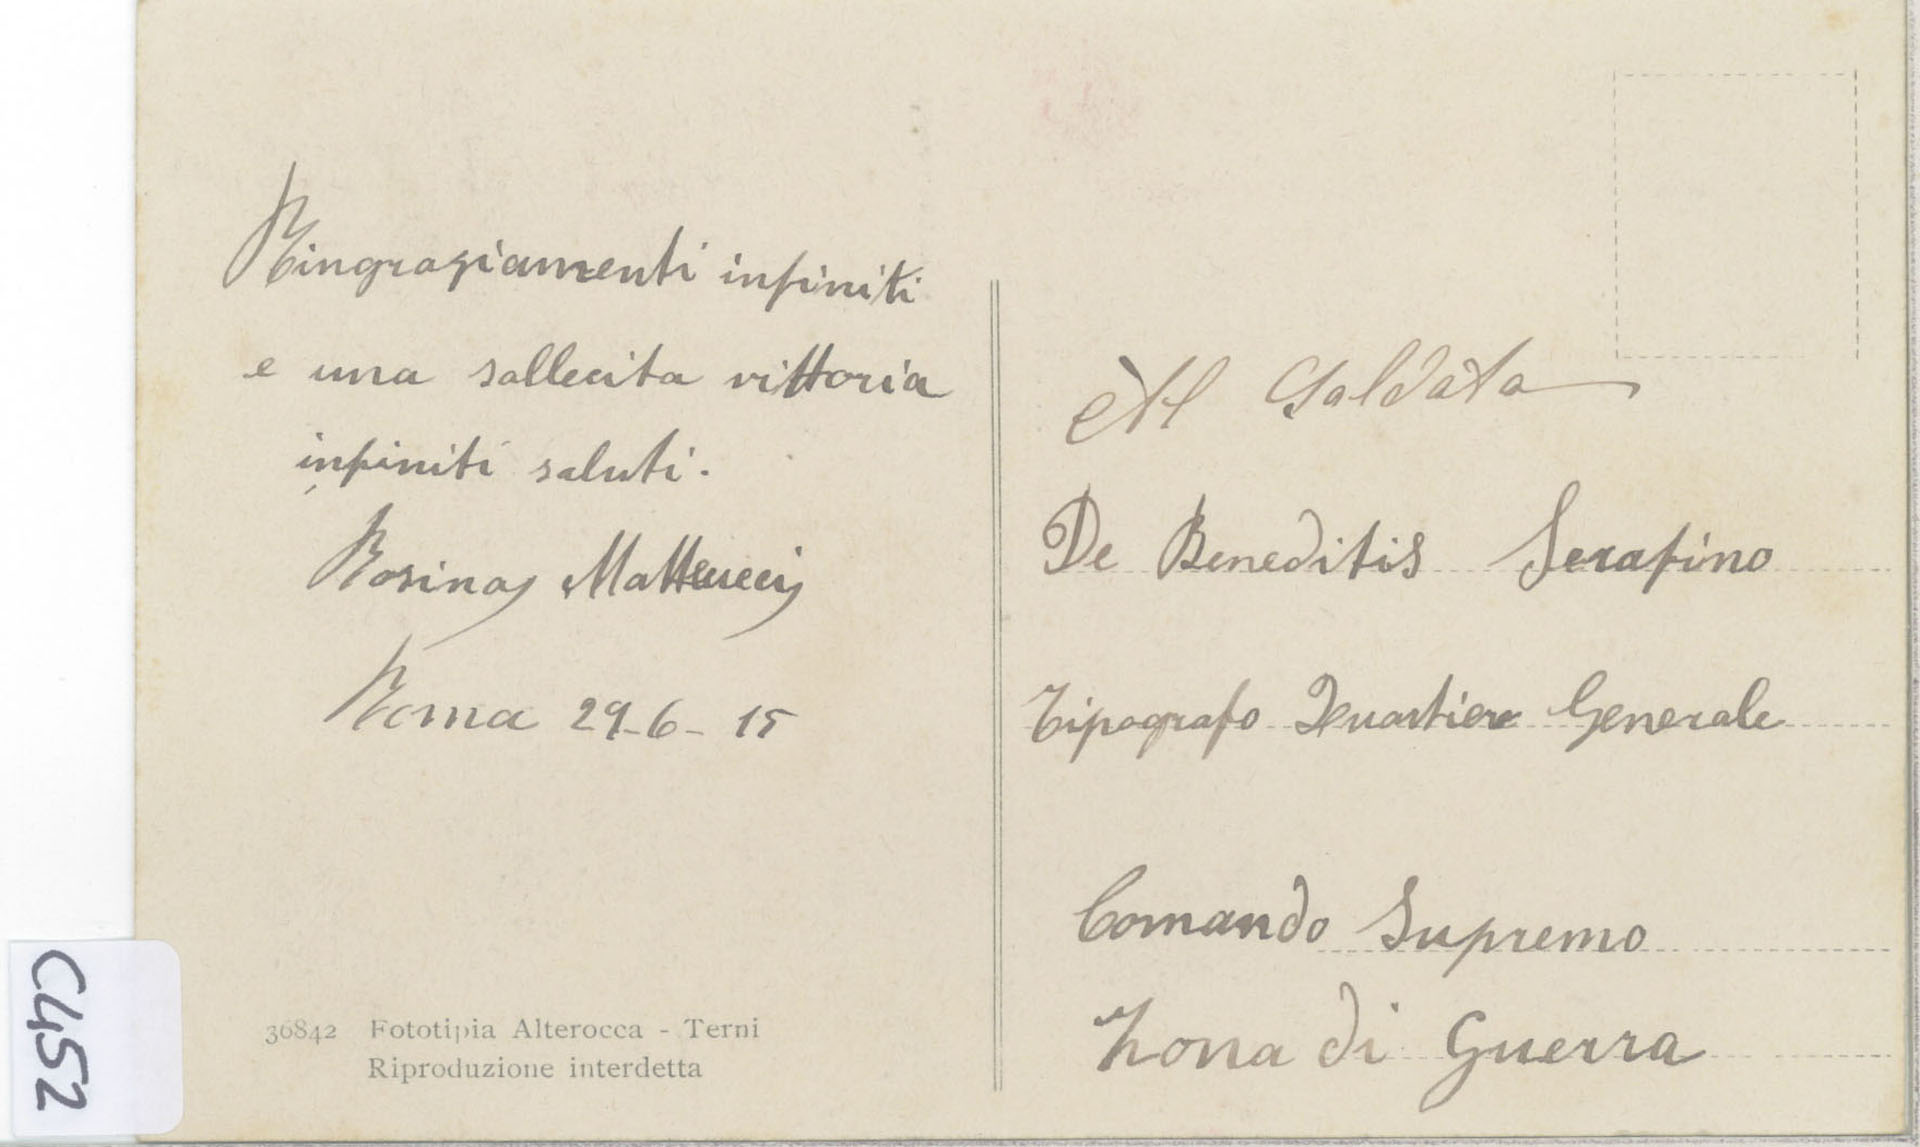 Ringraziamenti infiniti
e una sollecita vittoria
infiniti saluti.
Rosina Matteucci
Roma 29-6-15
Al Soldato
De Beneditis Serafino
Tipografo Quartiere Generale
Comando Supremo
Zona di Guerra
36842 Fototipia Alterocca - Terni
Riproduzione interdetta
C452